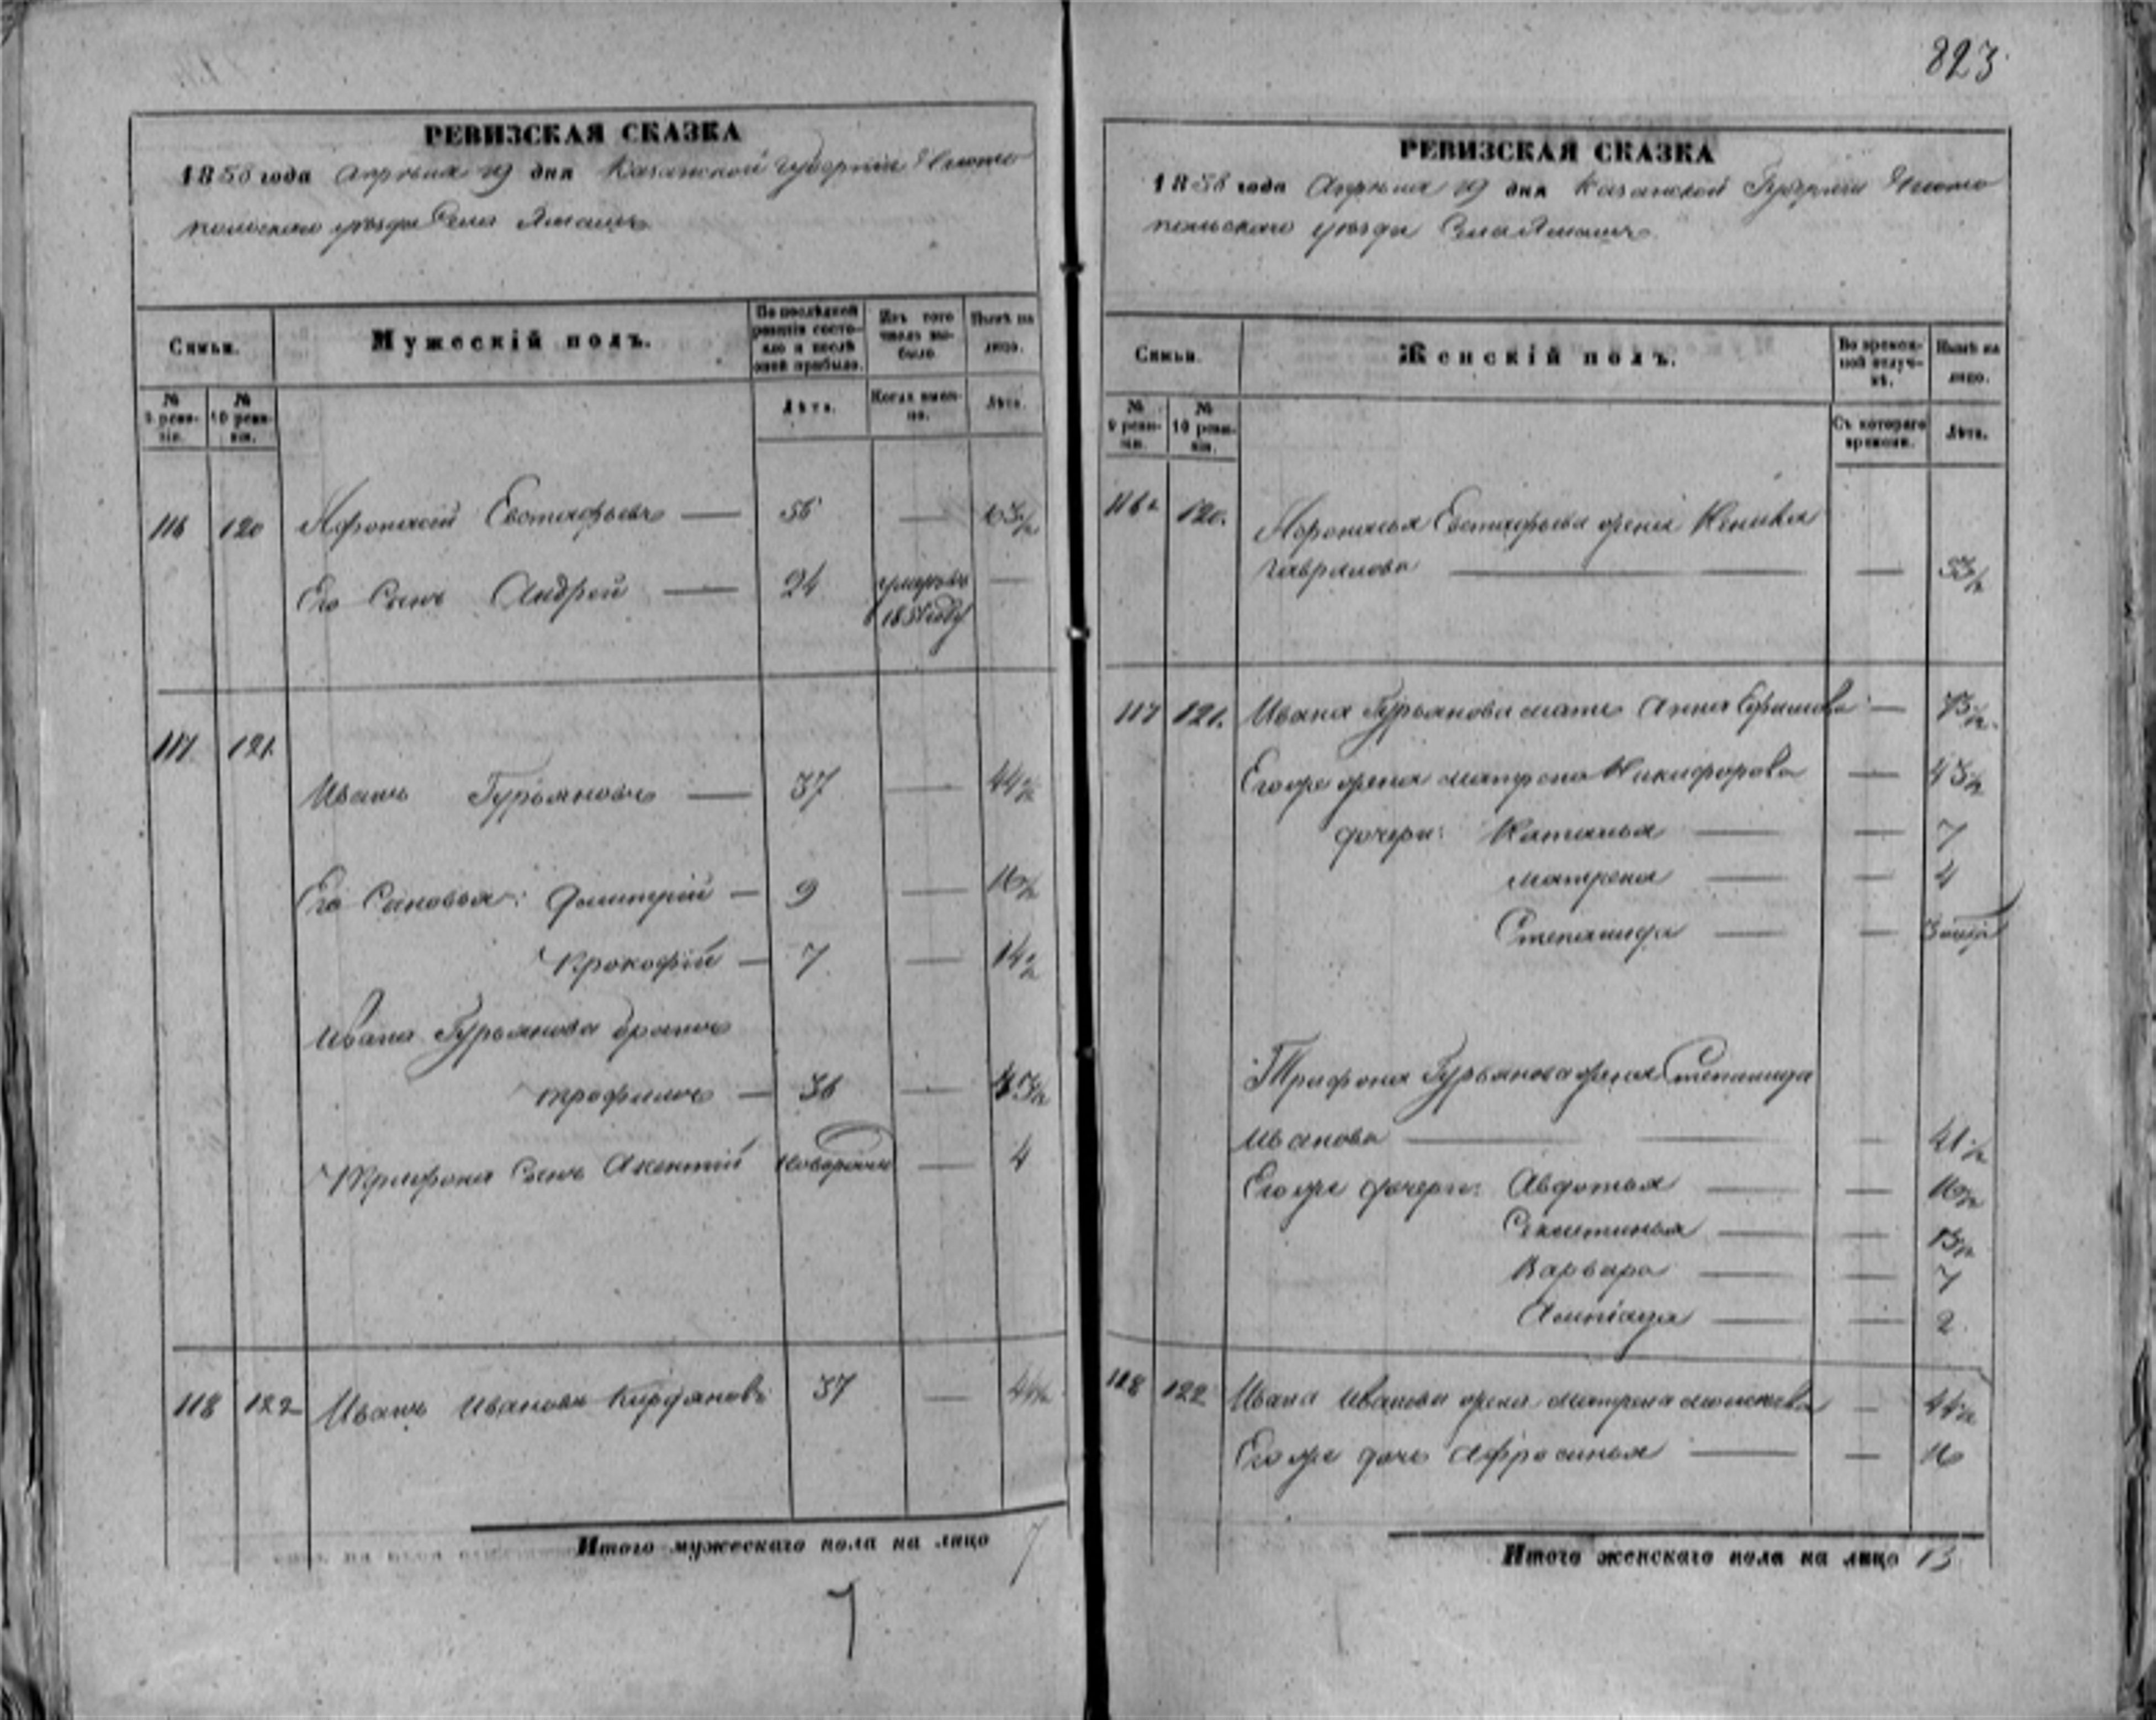 823
РЕВИЗСКАЯ СКАЗКА
1858 года Апреля 19 дня Казанской Губернии Чисто
польскаго уезда Села Ямаши
Семьи.
Мужескій полъ.
По послѣдней ревизіи состояло и послѣ оной прибыло.
Изъ того числа выбыло.
Нынѣ на лицо.
№ 9 ревизіи.
№ 10 ревизіи.
Лѣта.
Когда именно.
Лѣта.
116 120 Афонасій Евстафьевъ — 56 — 63½
Его Сынъ Андрей — 24 умеръ въ —
1851 году
117 121
Иванъ Гурьяновъ — 37 — 44½
Его Сыновья: Дмитрій — 9 — 16½
Прокофій — 7 — 14½
Ивана Гурьянова братъ
Трофимъ — 36 — 43½
Трифона Сынъ Акентій — 4
118 122 Иванъ Ивановъ Кирдяновъ 37 — 44½
Итого мужескаго пола на лицо 7
7
РЕВИЗСКАЯ СКАЗКА
1858 года Апреля 19 дня Казанской Губерніи Чисто
польскаго уезда Села Ямаши
Семьи.
Женскій полъ.
Во временной отлучкѣ.
Нынѣ на лицо.
№ 9 ревизіи.
№ 10 ревизіи.
Съ котораго времени.
Лѣта.
116 120. Афонасья Евстафьева жена
Гаврилова — — 53½
117 121. Ивана Гурьянова мать Анна Ефимова — 73½
Его же жена матрена Никифорова — 43½
дочери: Наталья — — 7
матрена — — 4
Степанида — — 3
Трифона Гурьянова жена Степанида
Иванова — — 41½
Его же дочери: Авдотья — — 16½
Секлетинья — — 13½
Варвара — — 7
— — 2
118 122 Ивана Иванова жена матрена — 44½
Его же дочь Афросинья — — 16
Итого женскаго пола на лицо 13